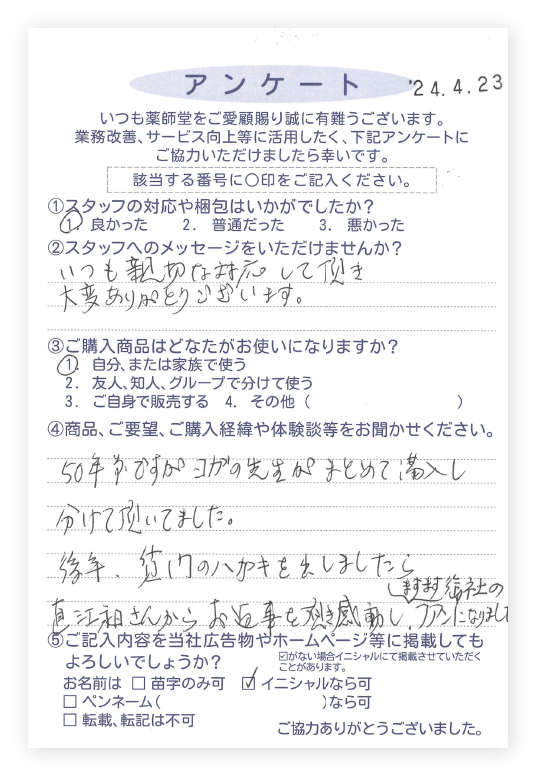 アンケート
'24.4.23
いつも薬師堂をご愛顧賜り誠に有難うございます。
業務改善、サービス向上等に活用したく、下記アンケートに
ご協力いただけましたら幸いです。
該当する番号に〇印をご記入ください。
①スタッフの対応や梱包はいかがでしたか?
1. 良かった 2. 普通だった 3. 悪かった
②スタッフへのメッセージをいただけませんか?
いつも親切な対応して頂き
大変ありがとうございます。
③ご購入商品はどなたがお使いになりますか?
1. 自分、または家族で使う
2. 友人、知人、グループで分けて使う
3. ご自身で販売する 4. その他 ( )
④商品、ご要望、ご購入経緯や体験談等をお聞かせください。
50年 ですがヨガの先生がまとめて購入し
分けて頂いてました。
後年、 のハガキを出しましたら
直江社 さんからお返事を頂き感動し、ますます 社のファンになりました
⑤ご記入内容を当社広告物やホームページ等に掲載しても
よろしいでしょうか?
☑がない場合イニシャルにて掲載させていただく
ことがあります。
お名前は □ 苗字のみ可 ☑ イニシャルなら可
□ ペンネーム( )なら可
□ 転載、転記は不可
ご協力ありがとうございました。